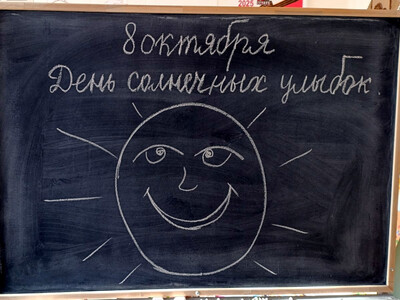 2025
8 октября
День солнечных улыбок.